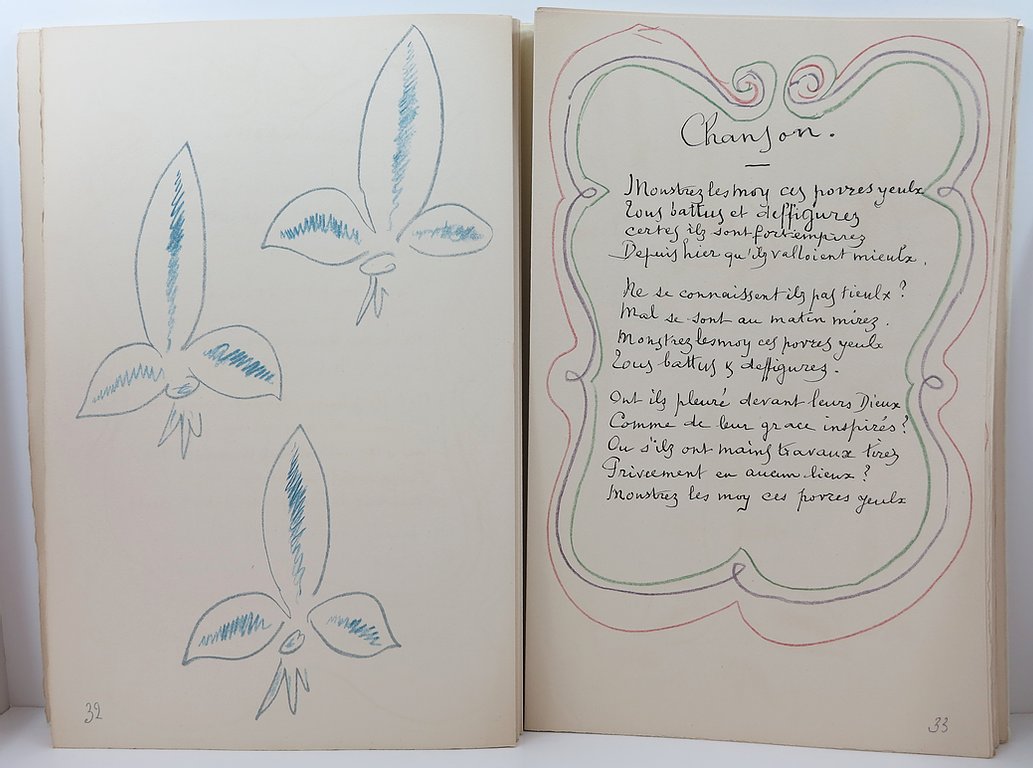 32
Chanson.
Monstrez les moy ces povres yeulx
Tous battus et deffigurez
certes ilz sont fort empirez
Depuis hier qu'ilz valloient mieulx.
Ne se connaissent ilz pas tieulx ?
Mal se sont au matin mirez.
Monstrez les moy ces povres yeulx
Tous battus & deffigurez.
Ont ilz pleuré devant leurs Dieux
Comme de leur grace inspirés ?
Ou s'ilz ont mains travaux tirez
Priveement en aucun lieux ?
Monstrez les moy ces povres yeulx
33